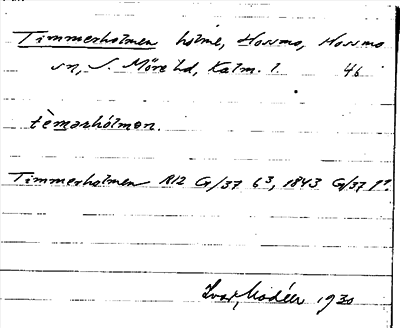 Timmerholmen holme, Hossmo, Hossmo
sn, S. Möre hd, Kalm. l. 46
tèmərhólmən.
Timmerholmen R12 G/37 6³, 1843 G/37
Ivar Modéer 1930